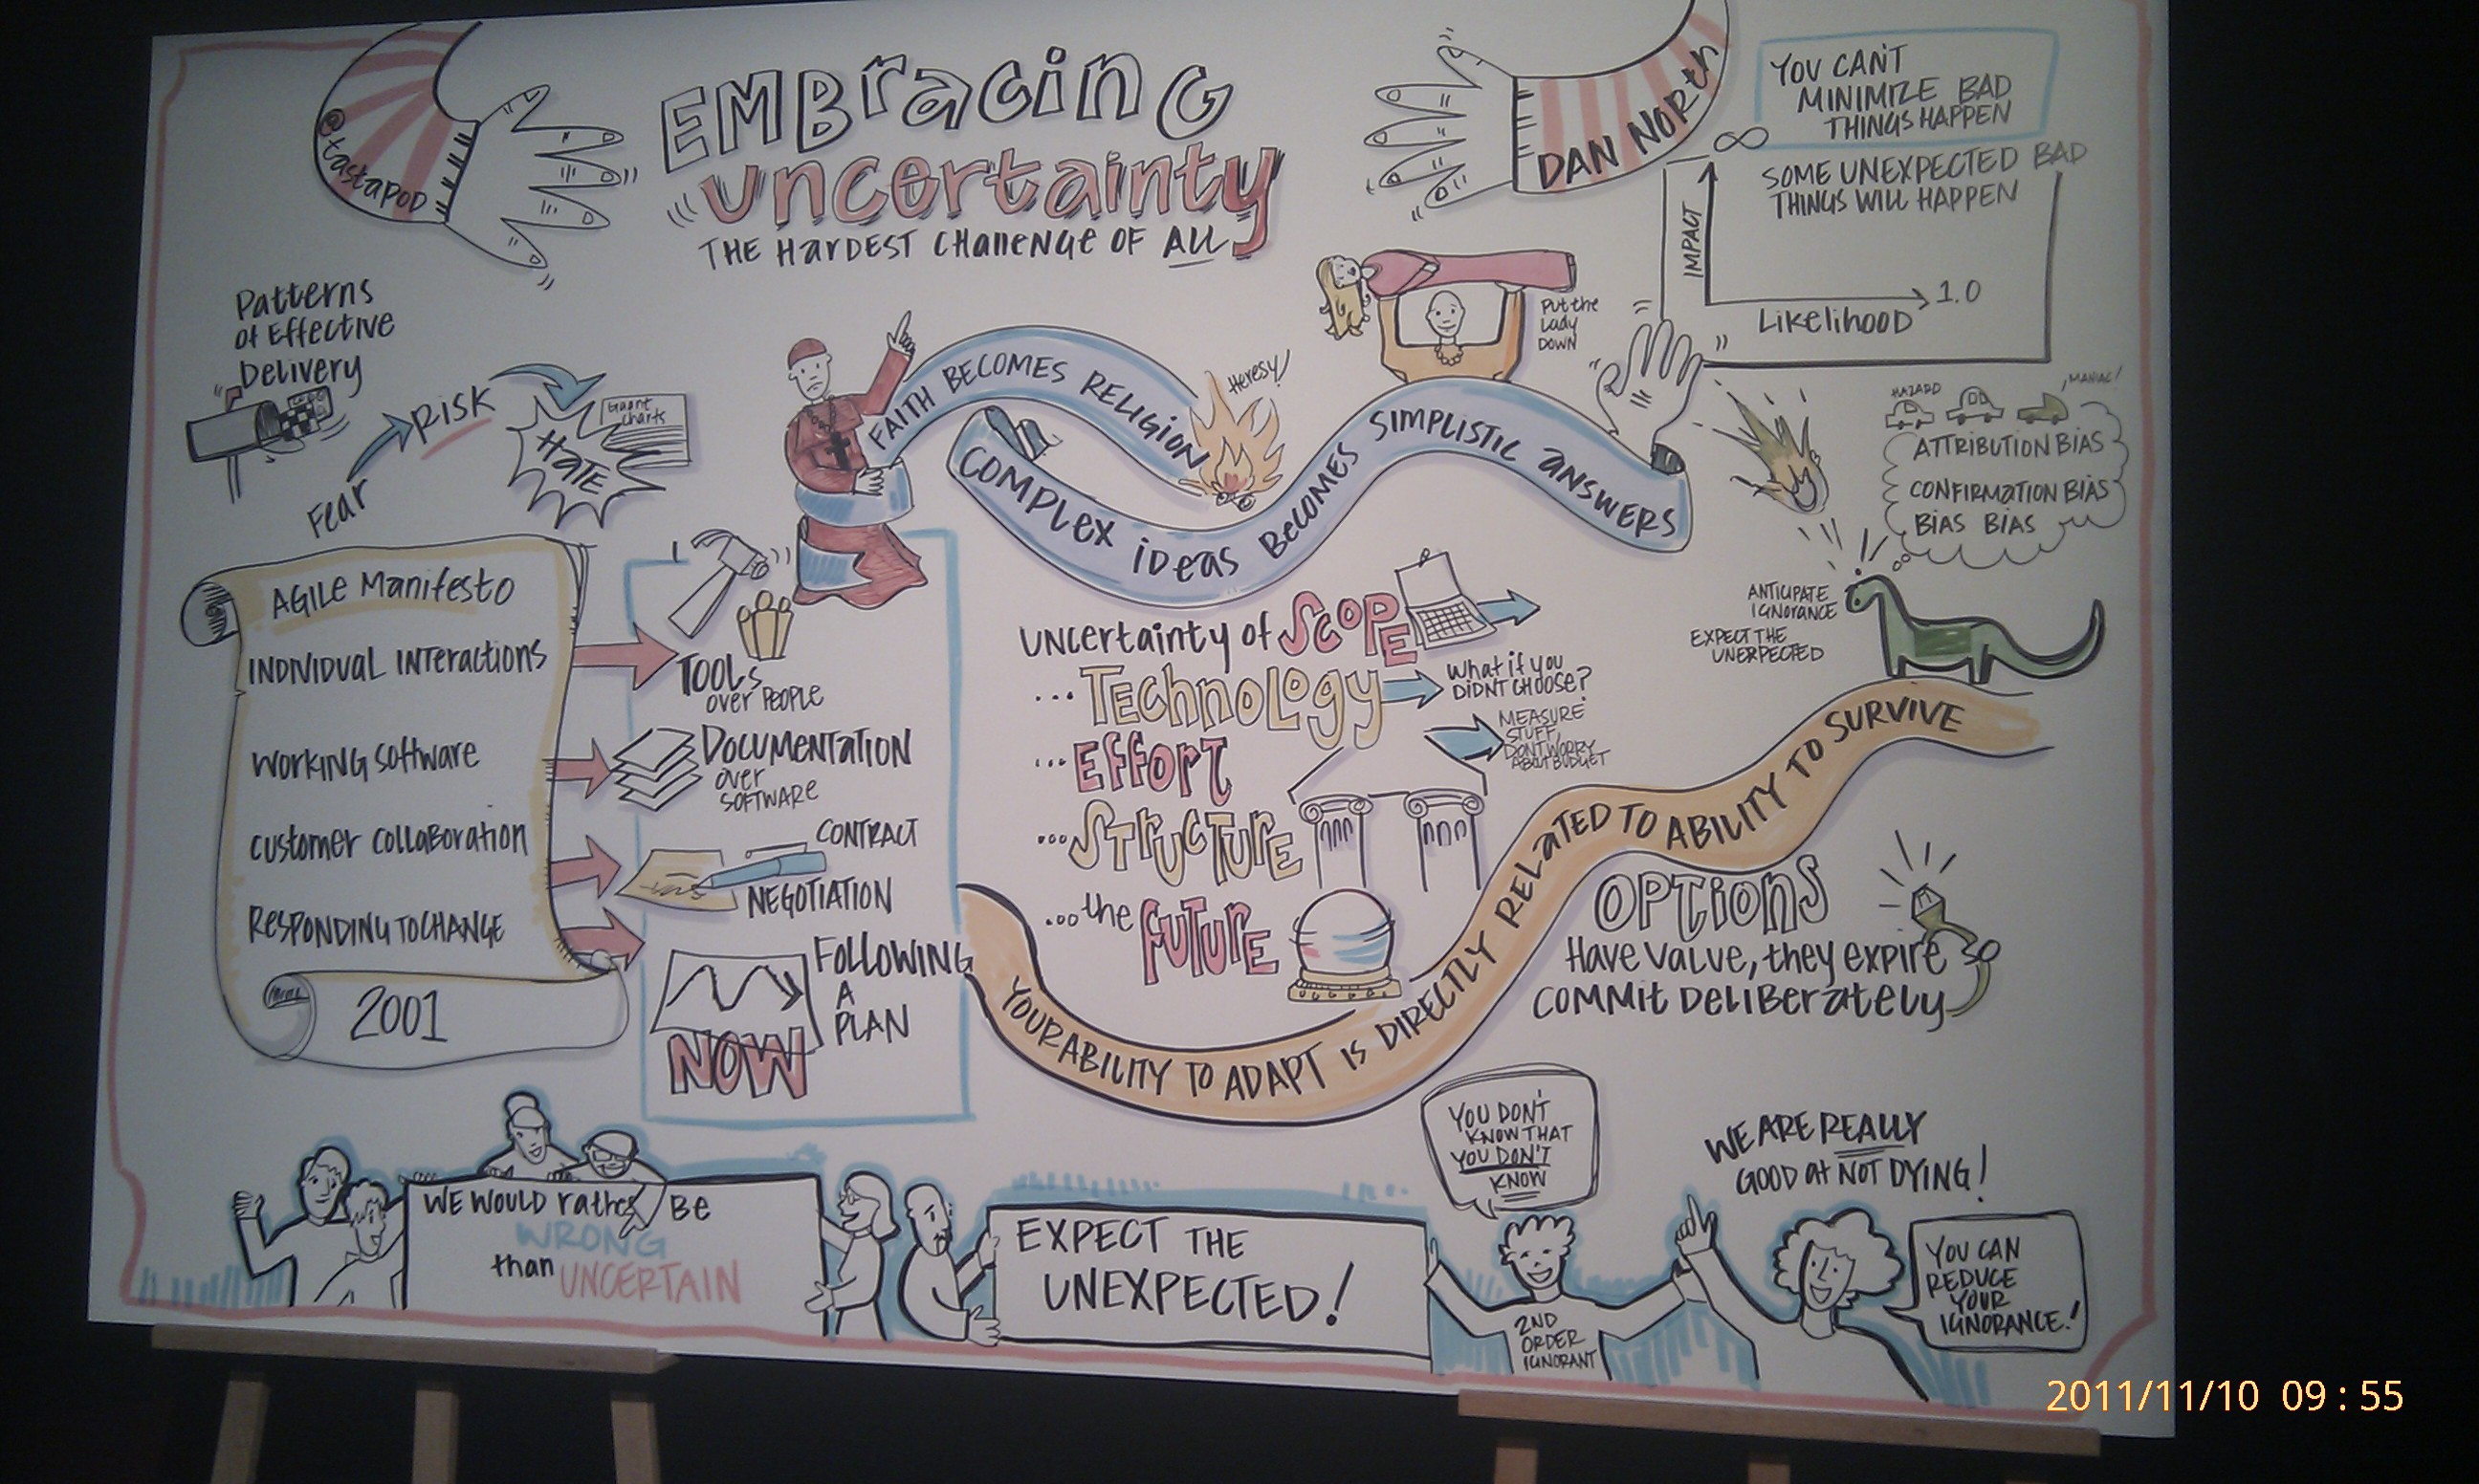 @tastapod
EMBracinG
uncertainty
THE HarDEST CHallENGE OF ALL
DAN NORth
YOU CAN'T
MINIMIZE BAD
THINGS HAPPEN
∞
SOME UNEXPECTED BAD
THINGS WILL HAPPEN
IMPACT
LIKELIHOOD
1.0
Patterns
of Effective
Delivery
Fear
RISK
HaTE
Gaant
charts
FAITH BECOMES RELIGION
Heresy!
COMPLEX iDEAS BECOMES SIMPLISTIC ANSWERS
Put the
Lady
DOWN
HAZARD
MANIAC!
ATTRIBUTION BIAS
CONFIRMATION BIAS
BIAS BIAS
ANTICIPATE
IGNORANCE
EXPECT THE
UNEXPECTED
AGILE Manifesto
INDIVIDUAL INTEractIONS
WORKING SOftware
CUSTOMER COLLABORATION
RESPONDING TO CHANGE
2001
TOOLS
over PEOPLE
DOCUMENTATION
over
SOFTWARE
CONTRACT
NEGOTIATION
FOLLOWING
A
PLAN
NOW
UNCertainty of SCOPE
... TECHNOLOGY
What if you
DIDNT CHOOSE?
... EFFORT
MEASURE
STUFF,
DON'T WORRY
ABOUT BUDGET
... STRUCTURE
... the FUTURE
YOUR ABILITY TO ADAPT IS DIRECTLY RELATED TO ABILITY TO SURVIVE
OPTIONS
Have Value, they expire
COMMIT DELIBERATELY
WE WOULD rather BE
WRONG
than UNCERTAIN
EXPECT THE
UNEXPECTED!
YOU DON'T
KNOW THAT
YOU DON'T
KNOW
2ND
ORDER
IGNORANT
WE ARE REALLY
GOOD at NOT DYING!
YOU CAN
REDUCE
YOUR
IGNORANCE!
2011/11/10 09:55